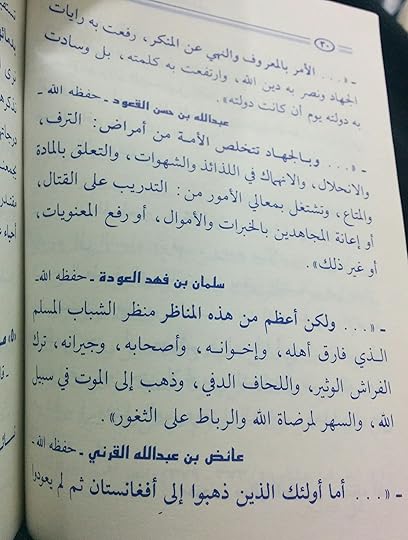 ٣٠
ـ «... الأمر بالمعروف والنهي عن المنكر، رفعت به رايات
الجهاد ونصر به دين الله، وارتفعت به كلمته، بل وسادت
به دولته يوم أن كانت دولته».
عبدالله بن حسن القعود ـ حفظه الله ـ
ـ «... وبالجهاد تتخلص الأمة من أمراض: الترف،
والانحلال، والانهماك في اللذائذ والشهوات، والتعلق بالمادة
والمتاع، وتشتغل بمعالي الأمور من: التدريب على القتال،
أو إعانة المجاهدين بالخبرات والأموال، أو رفع المعنويات،
أو غير ذلك».
سلمان بن فهد العودة ـ حفظه الله ـ
ـ «... ولكن أعظم من هذه المناظر منظر الشباب المسلم
الذي فارق أهله، وإخوانه، وأصحابه، وجيرانه، ترك
الفراش الوثير، واللحاف الدفي، وذهب إلى الموت في سبيل
الله، والسهر لمرضاة الله والرباط على الثغور».
عائض بن عبدالله القرني ـ حفظه الله ـ
ـ «... أما أولئك الذين ذهبوا إلى أفغانستان ثم لم يعودوا